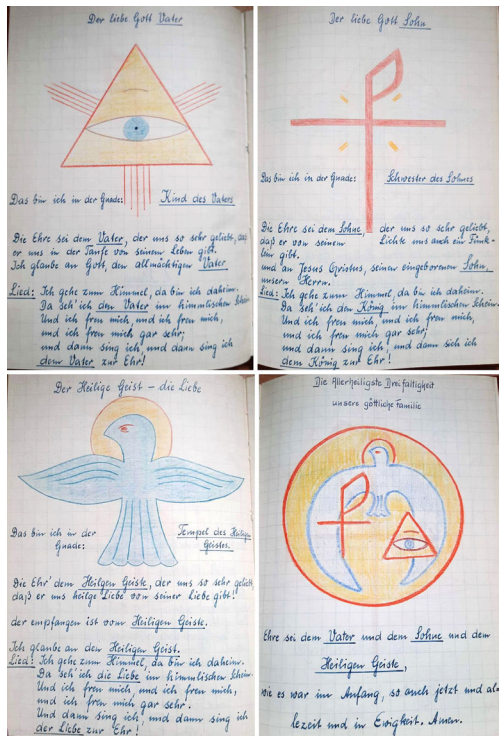 Der liebe Gott Vater
Das bin ich in der Gnade: Kind des Vaters
Die Ehre sei dem Vater, der uns so sehr geliebt, daß
er uns in der Taufe von seinem Leben gibt.
Ich glaube an Gott, den allmächtigen Vater
Lied: Ich gehe zum Himmel, da bin ich daheim.
Da seh' ich den Vater im himmlischen Schein.
Und ich freu mich, und ich freu mich,
und ich freu mich gar sehr,
und dann sing ich, und dann sing ich
dem Vater zur Ehr!
Der liebe Gott Sohn
Das bin ich in der Gnade: Schwester des Sohnes
Die Ehre sei dem Sohne, der uns so sehr geliebt,
daß er von seinem Lichte uns auch ein Fünk-
lein gibt.
und an Jesus Christus, seinen eingeborenen Sohn,
unsern Herrn.
Lied: Ich gehe zum Himmel, da bin ich daheim.
Da seh' ich den König im himmlischen Schein.
Und ich freu mich, und ich freu mich,
und ich freu mich gar sehr!
und dann sing ich, und dann sich ich
dem König zur Ehr!
Der Heilige Geist – die Liebe
Das bin ich in der Gnade: Tempel des Heiligen
Geistes.
Die Ehr' dem Heilgen Geiste, der uns so sehr geliebt,
daß er uns heilge Liebe von seiner Liebe gibt!
der empfangen ist vom Heiligen Geiste.
Ich glaube an den Heiligen Geist.
Lied: Ich gehe zum Himmel, da bin ich daheim.
Da seh' ich die Liebe im himmlischen Schein.
Und ich freu mich, und ich freu mich,
und ich freu mich gar sehr.
Und dann sing ich, und dann sing ich
der Liebe zur Ehr!
Die Allerheiligste Dreifaltigkeit
unsere göttliche Familie
Ehre sei dem Vater und dem Sohne und dem
Heiligen Geiste,
wie es war im Anfang, so auch jetzt und al-
lezeit und in Ewigkeit. Amen.